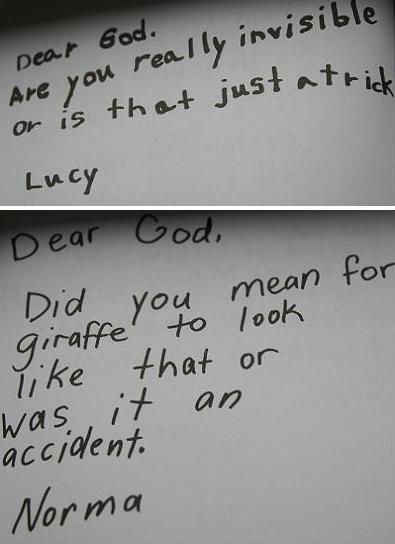 Dear God.
Are you really invisible
or is that just a trick
Lucy
Dear God,
Did you mean for
giraffe to look
like that or
was it an
accident.
Norma